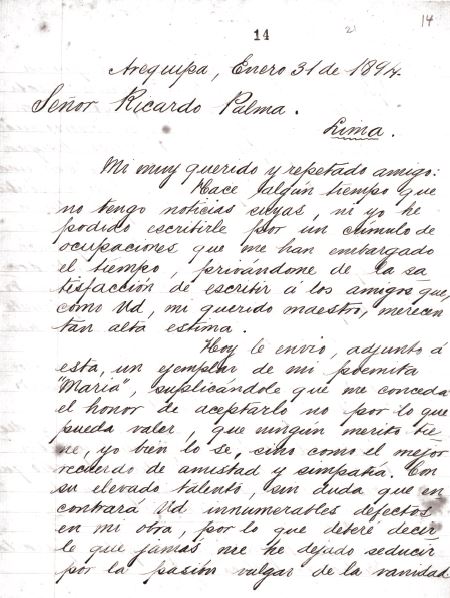 14
21
14
Arequipa, Enero 31 de 1894.
Señor Ricardo Palma.
Lima.
Mi muy querido y repetado amigo:
Hace algún tiempo que
no tengo noticias suyas, ni yo he
podido escribirle por un cúmulo de
ocupaciones que me han embargado
el tiempo, privándome de la sa
tisfacción de escribir á los amigos que,
como Ud, mi querido maestro, merecen
tan alta estima.
Hoy le envío, adjunto á
esta, un ejemplar de mi poemita
"María", suplicándole que me conceda
el honor de aceptarlo no por lo que
pueda valer, que ningún merito tie
ne, yo bien lo se, sino como el mejor
recuerdo de amistad y simpatía. Con
su elevado talento, sin duda que en
contrará Ud innumerables defectos
en mi obra, por lo que deberé decir
le que jamás me he dejado seducir
por la pasión vulgar de la vanidad